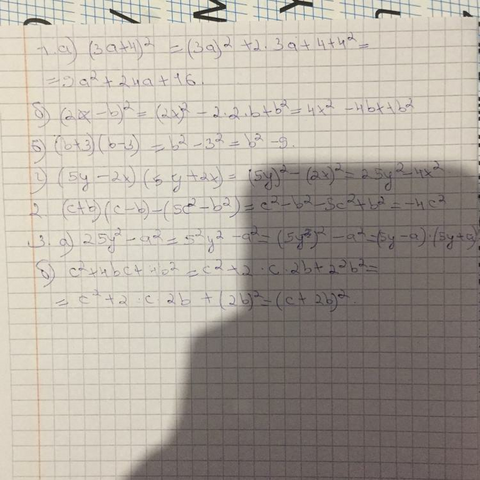 1. а) (3a+4)² = (3a)² + 2·3a+4+4² =
= 9a² + 24a + 16.
б) (2x-b)² = (2x)² - 2·2·b+b² = 4x² - 4b+b²
в) (b+3)(b-3) = b² - 3² = b² - 9.
г) (5y - 2x)(5y+2x) = (5y)² - (2x)² = 25y² - 4x²
2. (c+b)(c-b) - (5c² - b²) = c² - b² - 5c² + b² = -4c²
3. а) 25y² - a² = 5²y² - a² = (5y)² - a² = (5y-a)·(5y+a)
б) c² + 4bc + 4b² = c² + 2·c·2b + 2²b² =
= c² + 2·c·2b + (2b)² = (c + 2b)²